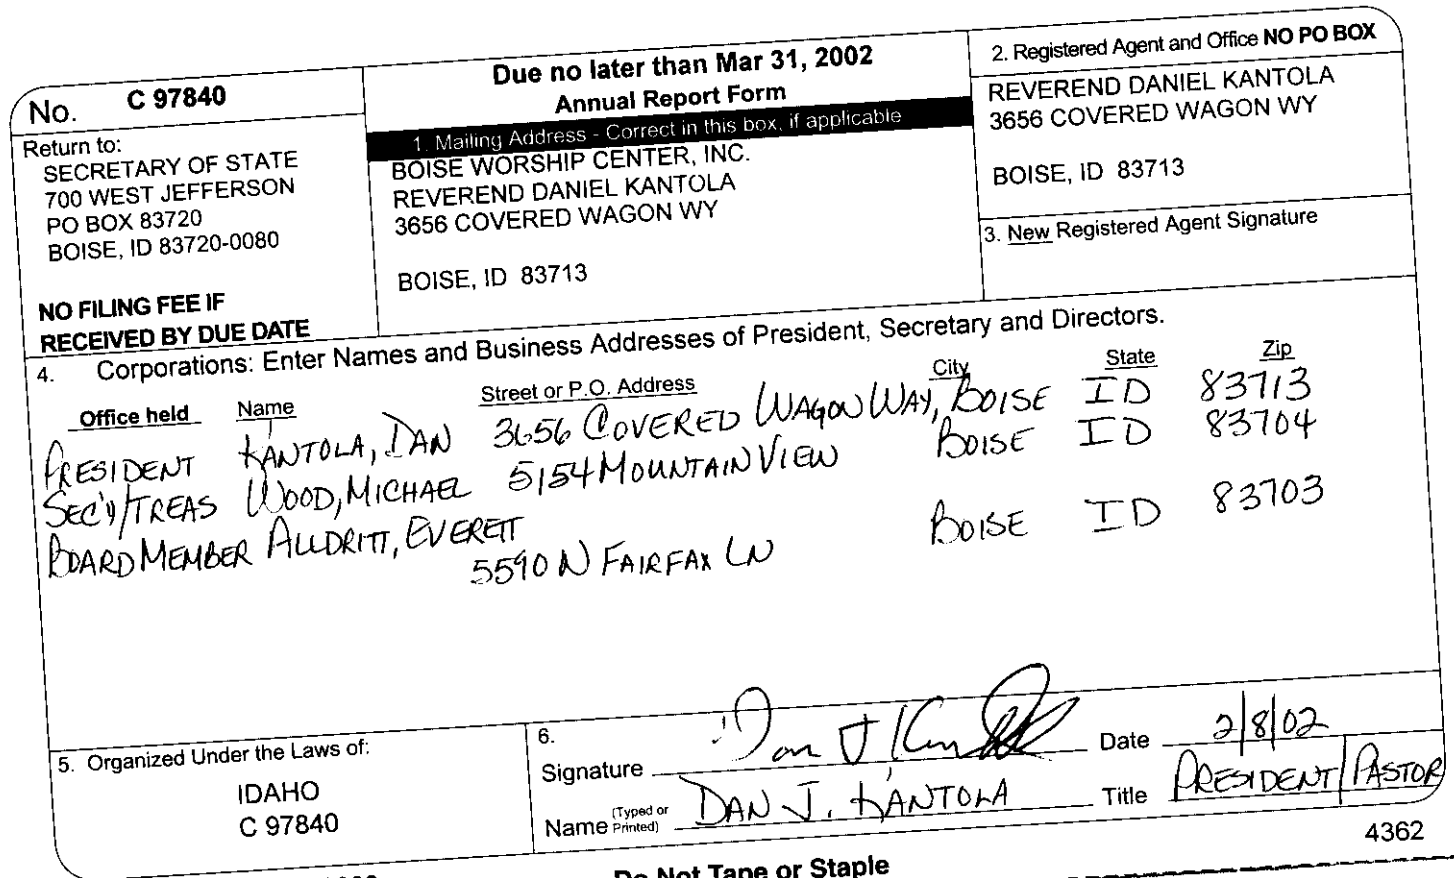 No. C 97840
Return to:
SECRETARY OF STATE
700 WEST JEFFERSON
PO BOX 83720
BOISE, ID 83720-0080
NO FILING FEE IF
RECEIVED BY DUE DATE
Due no later than Mar 31, 2002
Annual Report Form
1. Mailing Address - Correct in this box, if applicable
BOISE WORSHIP CENTER, INC.
REVEREND DANIEL KANTOLA
3656 COVERED WAGON WY
BOISE, ID 83713
2. Registered Agent and Office NO PO BOX
REVEREND DANIEL KANTOLA
3656 COVERED WAGON WY
BOISE, ID 83713
3. New Registered Agent Signature
4. Corporations: Enter Names and Business Addresses of President, Secretary and Directors.
Office held Name Street or P.O. Address City State Zip
PRESIDENT KANTOLA, DAN 3656 COVERED WAGON WAY, BOISE ID 83713
SEC'Y/TREAS WOOD, MICHAEL 5154 MOUNTAIN VIEW BOISE ID 83704
BOARD MEMBER ALLDRITT, EVERETT
5590 N FAIRFAX LN BOISE ID 83703
5. Organized Under the Laws of:
IDAHO
C 97840
6.
Signature Dan J Date 2/8/02
Name (Typed or Printed) DAN J. KANTOLA Title PRESIDENT/PASTOR
4362
Do Not Tape or Staple